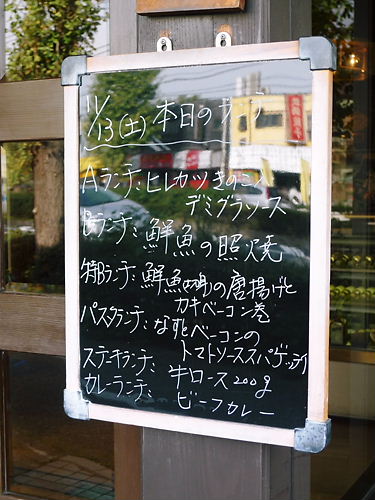 11/13(土) 本日のランチ
Aランチ: ヒレカツきのこ
デミグラソース
Bランチ: 鮮魚の照焼
特Bランチ: 鮮魚の唐揚げと
カキベーコン巻
パスタランチ: なすとベーコンの
トマトソーススパゲッティ
ステーキランチ: 牛ロース200g
カレーランチ: ビーフカレー